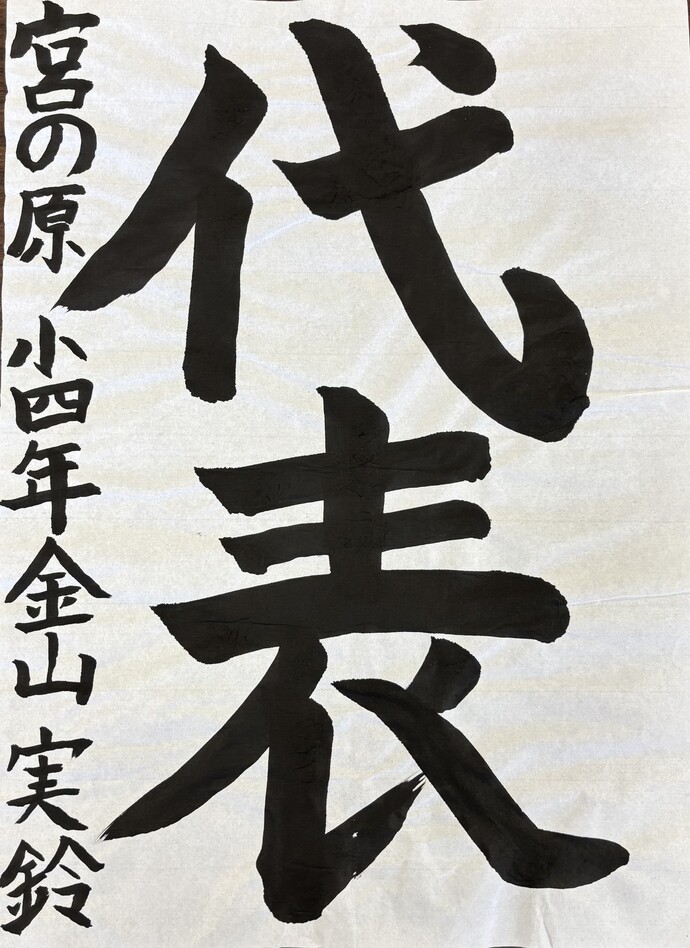 代表
宮の原小四年金山実鈴